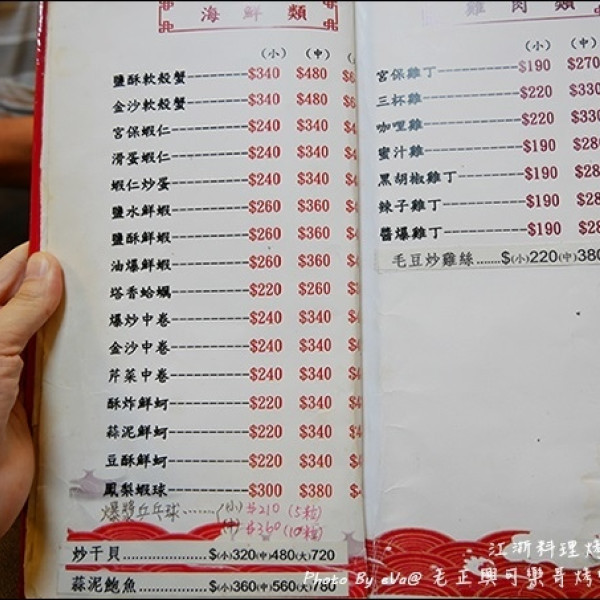 海鮮類
(小) (中)
鹽酥軟殼蟹 $340 $480
金沙軟殼蟹 $340 $480
宮保蝦仁 $240 $340
滑蛋蝦仁 $240 $340
蝦仁炒蛋 $240 $340
鹽水鮮蝦 $260 $360
鹽酥鮮蝦 $260 $360
油爆鮮蝦 $260 $360
塔香蛤蠣 $220 $260
爆炒中卷 $240 $340
金沙中卷 $240 $340
芹菜中卷 $240 $340
酥炸鮮蚵 $220 $340
蒜泥鮮蚵 $220 $340
豆酥鮮蚵 $220 $340
鳳梨蝦球 $300 $380
爆漿乒乓球……(小)$210 (5粒)
(中)$360 (10粒)
炒干貝……$(小)320(中)480(大)720
蒜泥鮑魚……$(小)360(中)560(大)780
雞肉類
(小) (中)
宮保雞丁 $190 $270
三杯雞 $220 $330
咖哩雞 $220 $330
蜜汁雞 $190 $280
黑胡椒雞丁 $190 $28
辣子雞丁 $190 $28
醬爆雞丁 $190 $28
毛豆炒雞絲……$(小)220(中)380
江浙料理 烤
Photo By eVa@ 毛正興可樂哥烤